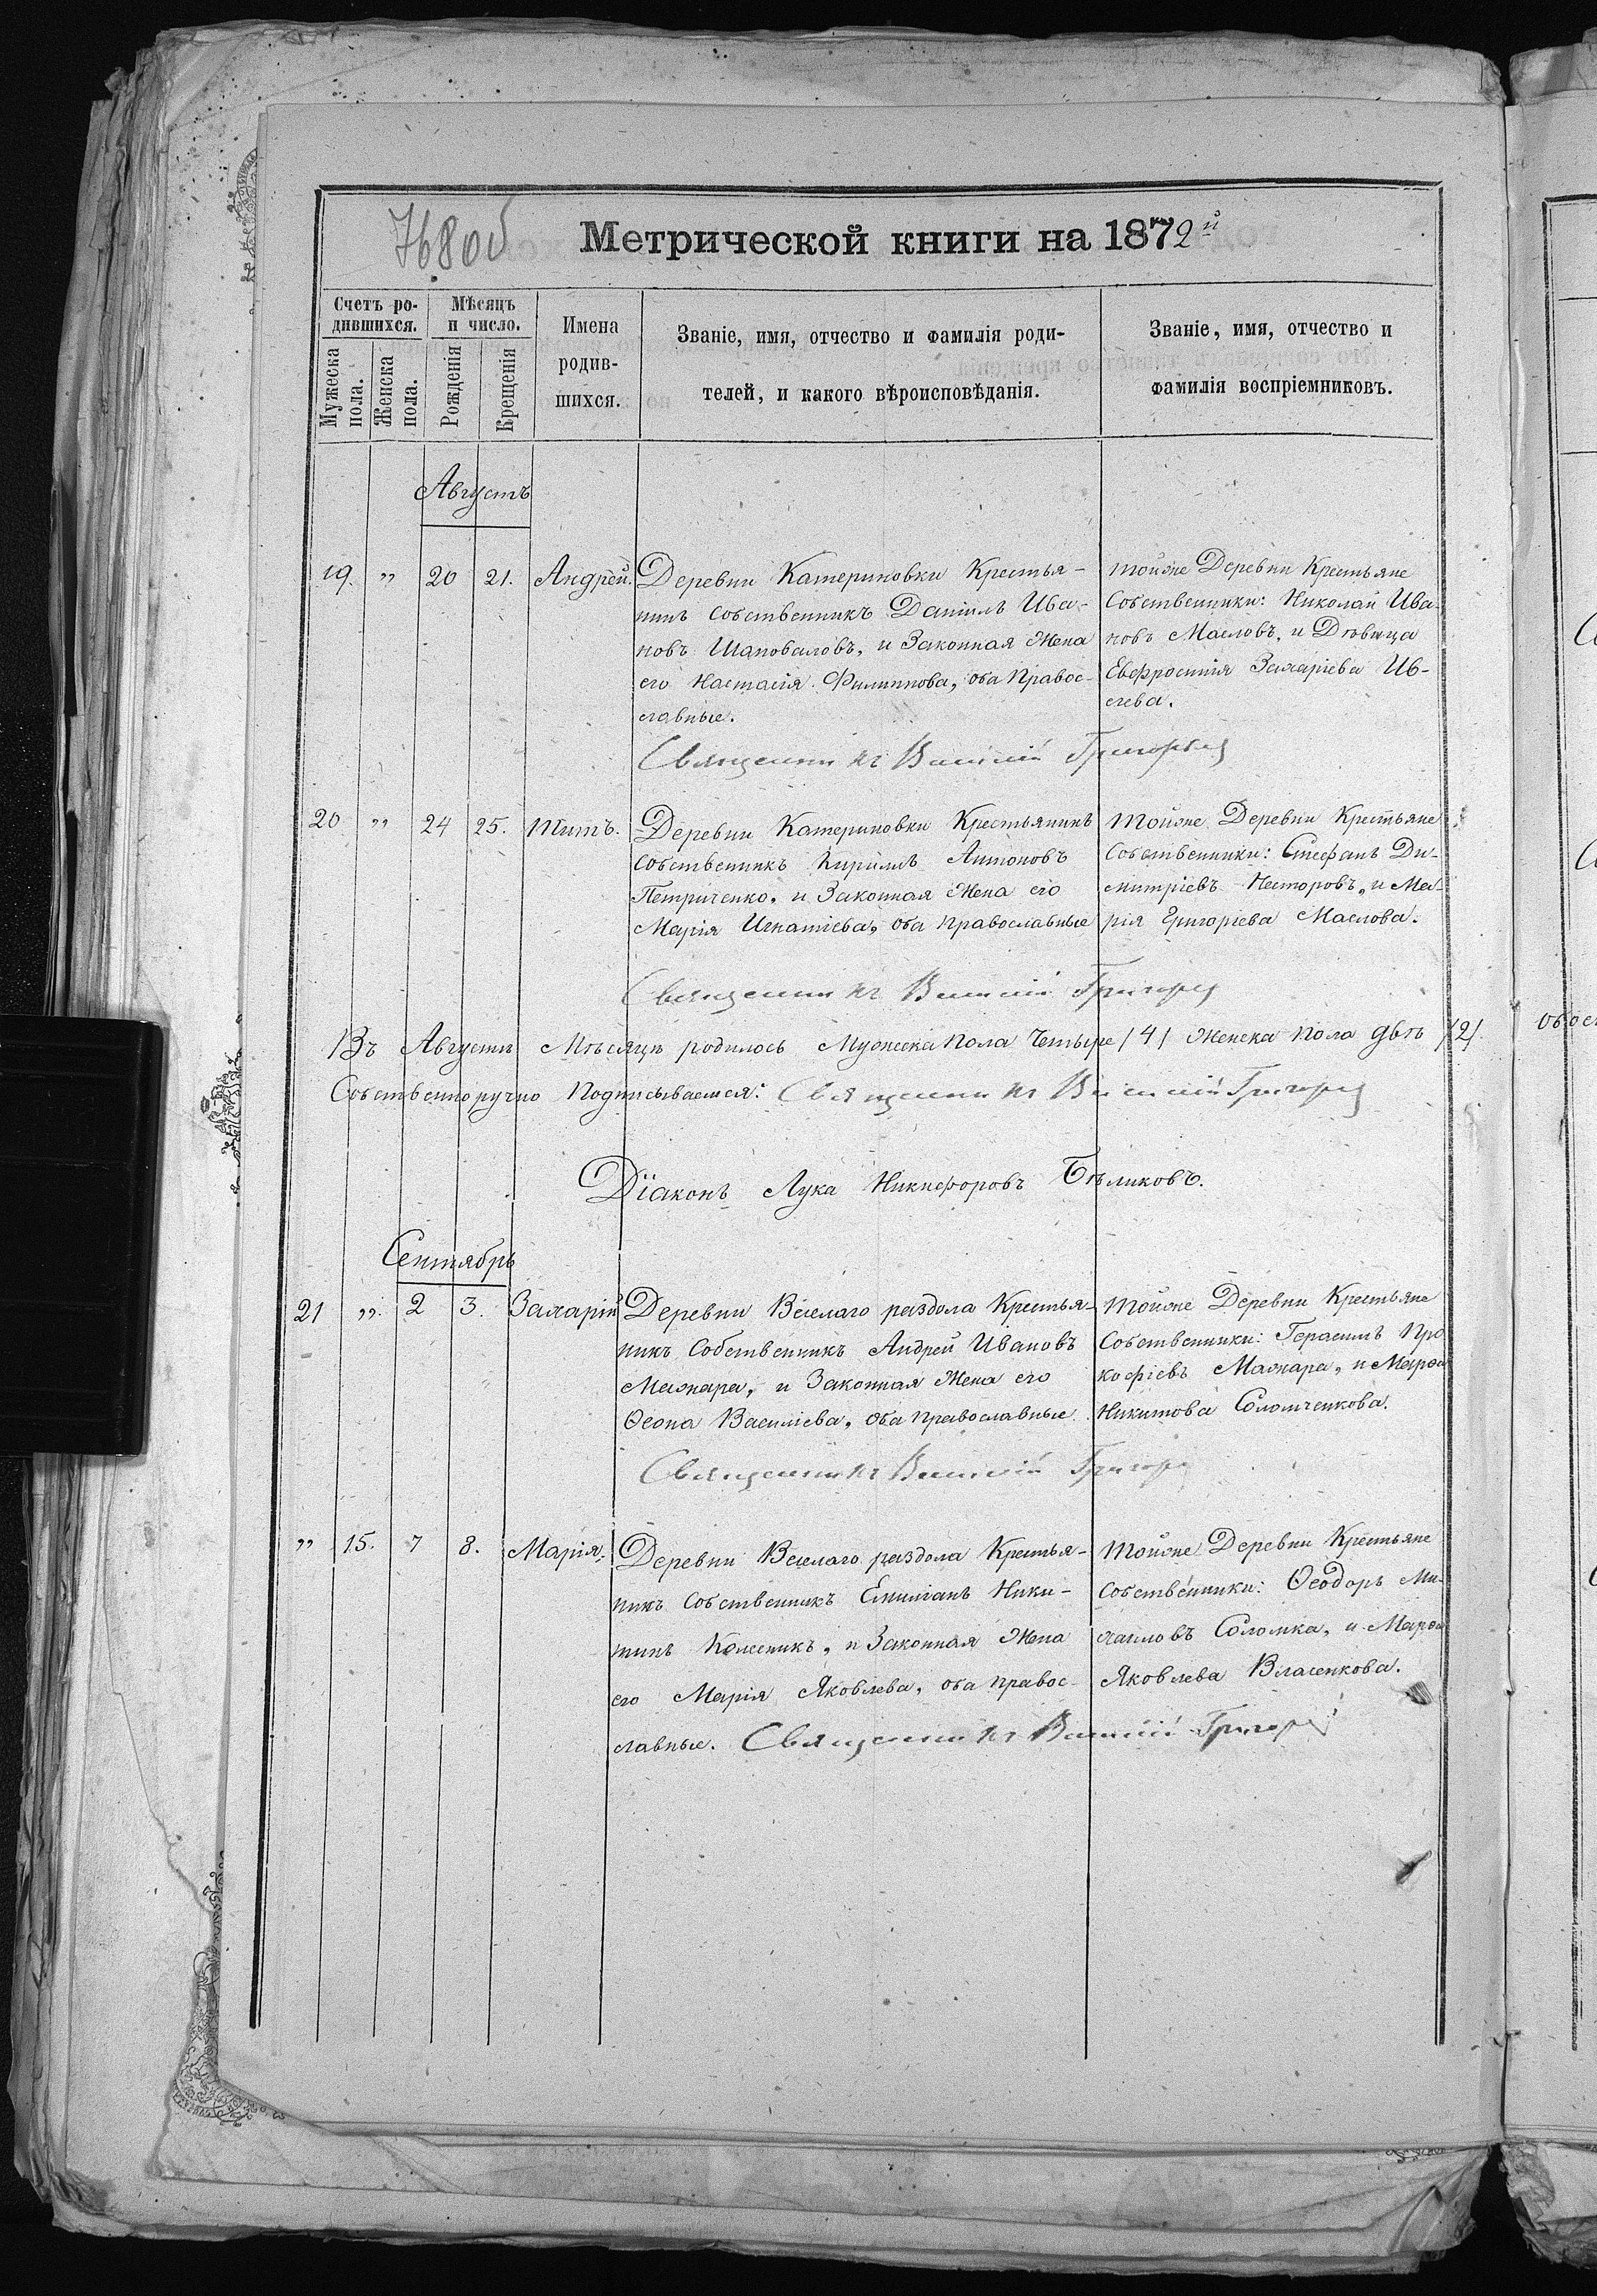 768об
Метрической книги на 1872й
Счетъ ро-
дившихся.
Мѣсяцъ
и число.
Мужеска
пола.
Женска
пола.
Рожденія
Крещенія
Имена
родив-
шихся.
Званіе, имя, отчество и фамилія роди-
телей, и какого вѣроисповѣданія.
Званіе, имя, отчество и
фамилія воспріемниковъ.
Августъ
19. „ 20 21. Андрей.
Деревни Катериновки Крестья-
нинъ собственникъ Даніилъ Ива-
новъ Шаповаловъ, и Законная Жена
его Настасія Филиппова, оба Правос-
лавные.
тойже Деревни Крестьяне
Собственники: Николай Ива-
новъ Масловъ, и Дѣвица
Евфросинія Захаріева Ив-
лева.
Священникъ Василій Григорьев
20 „ 24 25. Титъ.
Деревни Катериновки Крестьянинъ
собственникъ Кириллъ Антоновъ
Петриченко, и Законная Жена его
Марія Игнатіева, оба православные
тойже Деревни Крестьяне
Собственники: Стефанъ Ди-
митріевъ Несторовъ, и Ма-
рія Григоріева Маслова.
Священникъ Василій Григорьев
Въ Августѣ Мѣсяцѣ родилось Мужеска пола Четыре /4/ Женска пола двѣ /2/
Собственноручно Подписываемся: Священникъ Василій Григорьев
Діаконъ Лука Никифоровъ Бѣликовъ.
Сентябрь
21 „ 2 3. Захарій
Деревни Веселаго раздола Крестья-
нинъ Собственникъ Андрей Ивановъ
Мажара, и Законная Жена его
Ѳеона Василіева, Оба православные
тойже Деревни Крестьяне
Собственники: Герасимъ Про
кофіевъ Мажара, и Марѳа
Никитова Соломченкова.
Священникъ Василій Григорьев
„ 15. 7 8. Марія.
Деревни Веселаго раздола Крестья-
нинъ Собственникъ Емиліанъ Ники-
тинъ Колесникъ, и Законная Жена
его Марія Яковлева, оба правос-
лавные. Священникъ Василій Григорьев
тойже Деревни Крестьяне
Собственники: Ѳеодоръ Ми-
хаиловъ Соломка, и Марѳа
Яковлева Власенкова.